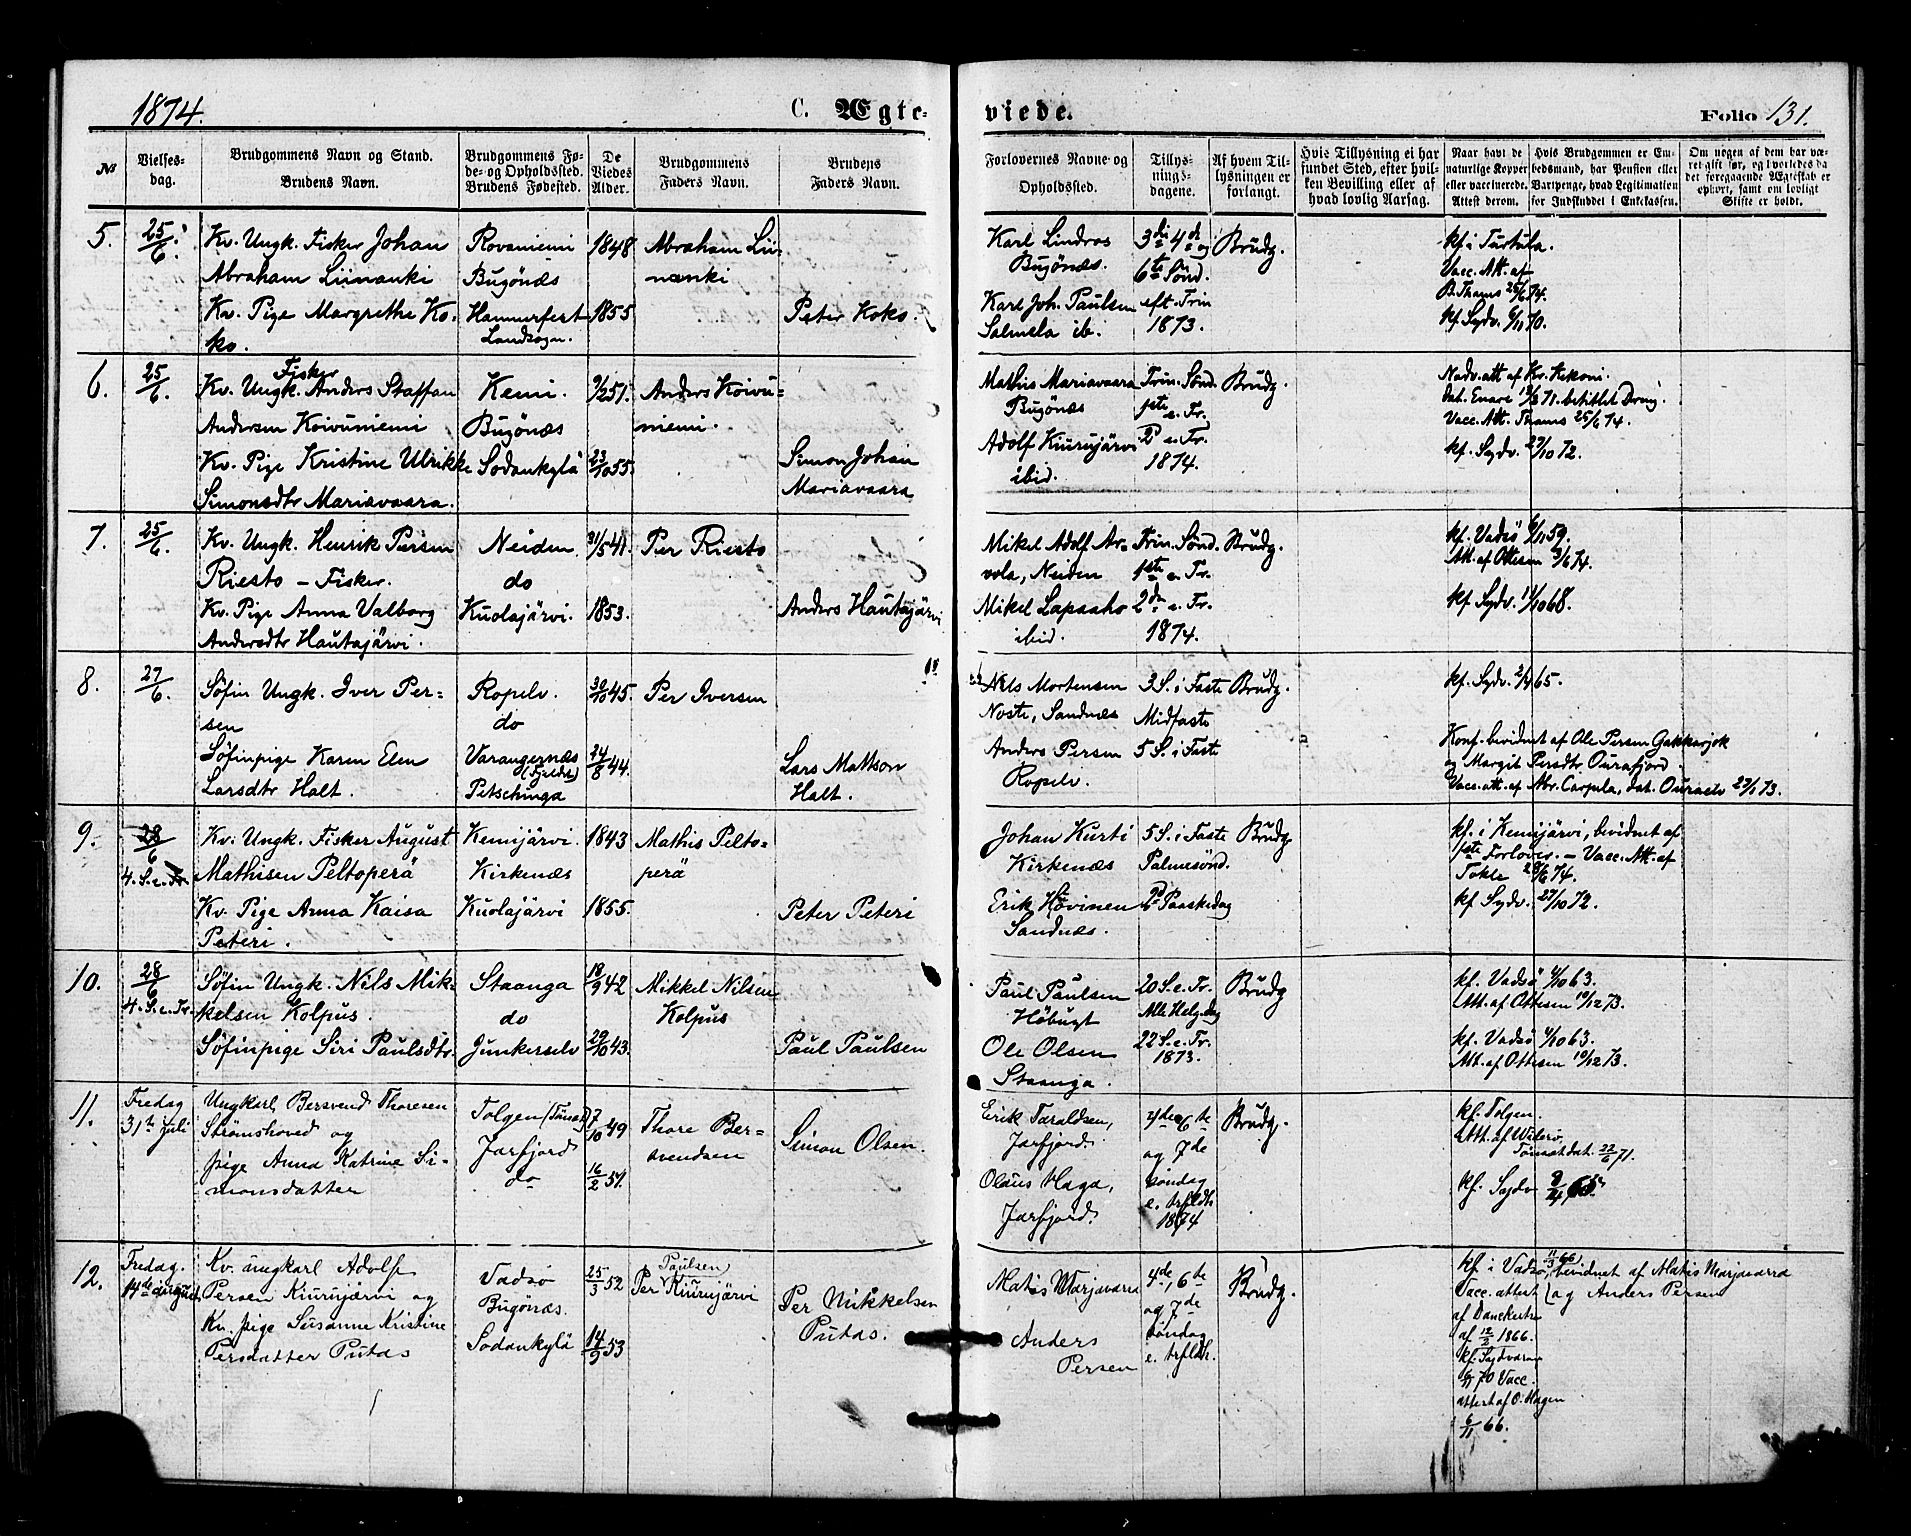 1874.
C. Ægte-
viede.
Folio 131.
№
Vielses-
dag.
Brudgommens Navn og Stand.
Brudens Navn.
Brudgommens Fø-
de- og Opholdssted.
Brudens Fødested.
De
Viedes
Alder.
Brudgommens
Faders Navn.
Brudens
Faders Navn.
Forlovernes Navne og
Opholdssted.
Tillys-
nings-
dagene.
Af hvem Til-
lysningen er
forlangt.
Hvis Tillysning ei har
fundet Sted, efter hvil-
ken Bevilling eller af
hvad lovlig Aarsag.
Naar havt de
naturlige Kopper
eller vaccinerede.
Attest derom.
Hvis Brudgommen er Em-
bedsmand, har Pension eller
Vartpenge, hvad Legitimation
for Indskuddet i Enkekassen.
Om nogen af dem har væ-
ret gift før, og hvorledes da
det foregaaende Ægteskab er
ophørt, samt om lovligt
Skifte er holdt.
5.
25/6.
Kv. Ungk. Fisker Johan
Abraham Liinanki
Kv. Pige Margrethe Ko-
ko.
Rovaniemi
Bugönæs
Hammerfest
Landsogn.
1848
1855
Abraham Lii-
nanki
Peter Koko.
Karl Lindros
Bugönæs.
Karl Joh. Paulsen
Salmela ib.
3die 4de og
6te Sönd.
eft. Trin
1873.
Brudg.
kf. i Turtula.
Vacc. Att. af
B. Thams 25/6 74.
kf. Sydv. 6/11 70.
6.
25/6.
Fisker
Kv. Ungk. Anders Staffan
Andersen Koivuniemi
Kv. Pige Kristine Ulrikke
Simonsdtr Mariavaara.
Kemi.
Bugönæs
Sodankylä
9/2 51.
23/10 55.
Anders Koivu-
niemi.
Simon Johan
Mariavaara
Mathis Mariavaara
Bugönæs
Adolf Kiurujärvi
ibid.
Trin. Sönd.
1ste e. Tr.
2d e. Tr.
1874.
Brudg.
Nadv. att af Kr. Kekoni.
dat. Enare
71. betitlet Dreng.
Vacc. Att. Thams 25/6 74.
kf. Sydv. 27/10 72.
7.
25/6.
Kv. Ungk. Henrik Persen
Riesto – Fisker.
Kv. Pige Anna Valborg
Andersdtr Hautajärvi.
Neiden
do
Kuolajärvi.
31/5 41.
1853.
Per Riesto
Anders Hautajärvi
Mikel Adolf Ar-
vola, Neiden
Mikel Lapaaho
ibid.
Trin. Sönd.
1ste e. Tr.
2d e. Tr.
1874.
Brudg.
kf. Vadsö 6/11 59.
Att. af Ottesen 3/6 74.
kf. Sydv. 11/10 68.
8.
27/6.
Söfin Ungk. Iver Per-
sen
Söfinpige Karen Elen
Larsdtr Halt.
Ropelv.
do
Varangernæs
(Fjeldt)
Petschinga
30/10 45.
24/8 44.
Per Iversen
Lars Mattson
Halt.
Nils Mortensen
Noste, Sandnæs
Anders Persen
Ropelv.
3 S. i Faste
Midfaste
5 S. i Faste
Brudg.
kf. Sydv. 2/4 65.
Konf. bevidnet af Ole Persen Gakkarjok
og Margit Persdtr Ourafjord.
Vacc. att. af Abr. Carpula, dat. Ouraelv 27/1 73.
9.
28/6
4. S. e. Tr.
Kv. Ungk. Fisker August
Mathisen Peltoperä
Kv. Pige Anna Kaisa
Peteri.
Kemijärvi
Kirkenæs
Kuolajärvi
1843
1855.
Mathis Pelto-
perä
Peter Peteri
Johan Kurti
Kirkenæs
Erik Hovinen
Sandnæs.
5 S. i Faste
Palmesönd.
2d Paaskedag
Brudg.
kf. i Kemijärvi, bevidnet af
1ste Forlover. – Vacc. Att. af
Tokle 28/6 74.
kf. Sydv. 27/10 72.
10.
28/6
4. S. e. Tr.
Söfin Ungk. Nils Mik-
kelsen Kolpus.
Söfinpige Siri Paulsdtr.
Staanga
do
Junkerselv
18/9 42
29/10 43.
Mikkel Nilsen
Kolpus
Paul Paulsen
Paul Paulsen
Höbugt
Ole Olsen
Staanga.
20 S. e. Tr.
Alle Helg. dag
22 S. e. Tr.
1873.
Brudg
kf. Vadsö 4/10 63.
Att. af Ottesen 10/12 73.
kf. Vadsö 4/10 63.
Att. af Ottesen 10/12 73.
11.
Fredag
31te Juli
Ungkarl Bersvend Thoresen
Strömshoved og
pige Anna Katrine Si-
monsdatter
Tolgen (Tönset)
Jarfjord
do
7/10 49
16/2 51.
Thore Ber-
svendsen
Simon Olsen.
Erik Taraldsen,
Jarfjord.
Olaus Haga,
Jarfjord.
4de, 6te
og 7de
söndag
e. trfldh.
1874
Brudg.
kf. Tolgen.
Att. af Wideröe
Tönset dat. 22/6 71.
kf. Sydv
12.
Fredag.
14de august
Kv. ungkarl Adolf
Persen Kiurujærvi og
Kv. pige Susanne Kristine
Persdatter Putas
Vadsø
Bugönæs.
Sodankylä
25/3 52
14/9 53
Paulsen
Per Kiurujärvi
Per Mikkelsen
Putas.
Matis Marjavarra
Anders
Persen
4de, 6te
og 7de
söndag
e. trfldh.
Brudg.
kf. i Vadsø 11/3 66, bevidnet af Matis Marjavarra
Vacc. attest
og Anders Persen
af Danckertsen
af 12/2 1866.
kf. Sydvaran
6/11 70 Vacc.
attest af O. Hagen
6/11 66.